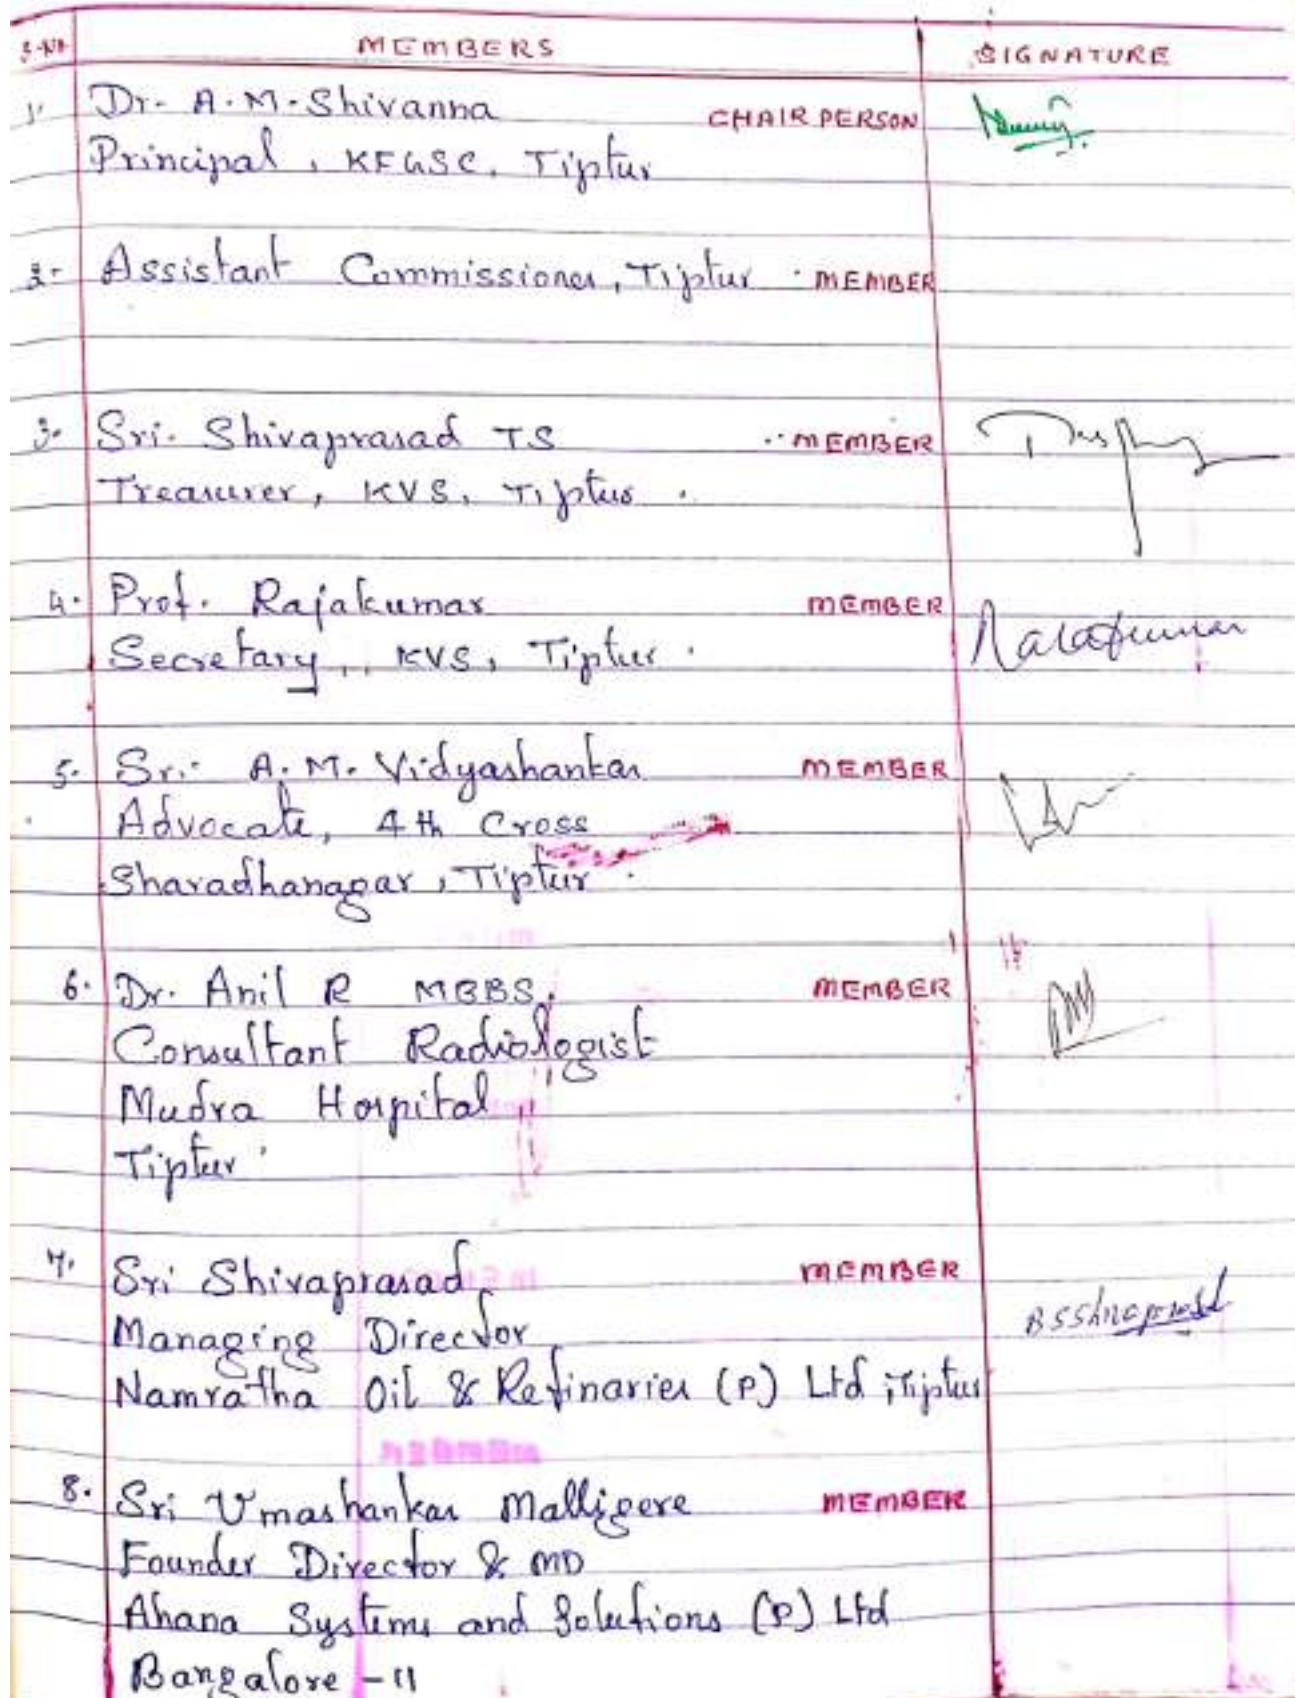 S.No MEMBERS SIGNATURE
1. Dr. A.M. Shivanna CHAIR PERSON
Principal, KFGSC, Tiptur
2. Assistant Commissioner, Tiptur. MEMBER
3. Sri. Shivaprasad TS MEMBER
Treasurer, KVS, Tiptur.
4. Prof. Rajakumar MEMBER
Secretary, KVS, Tiptur. Rajakumar
5. Sri. A.M. Vidyashankar MEMBER
Advocate, 4th Cross
Sharadhanagar, Tiptur.
6. Dr. Anil R MBBS, MEMBER
Consultant Radiologist
Mudra Hospital
Tiptur.
7. Sri Shivaprasad MEMBER
Managing Director BSShivaprasad
Namratha Oil & Refinaries (P) Ltd, Tiptur
8. Sri Umashankar Malligere MEMBER
Founder Director & MD
Ahana Systems and Solutions (P) Ltd
Bangalore - 11